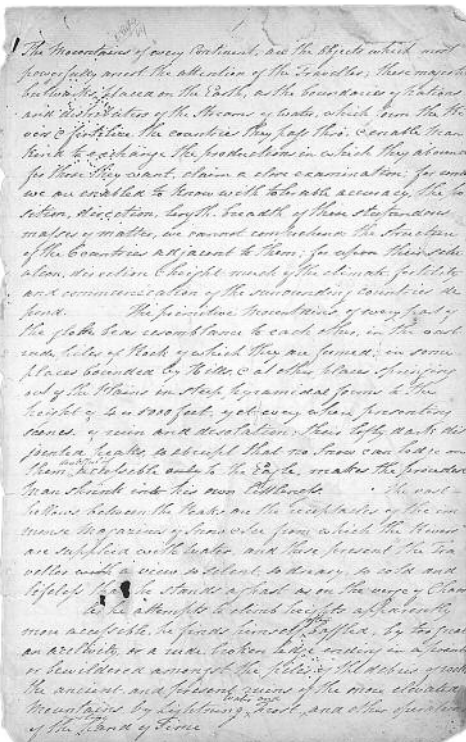 The Mountains of every Continent, are the Objects which most
powerfully arrest the attention of the Traveller; these majestic
bulwarks, placed on the Earth, as the boundaries of Nations
and distribution of the Streams of water, which form the Ri
vers & fertilize the countries they pass thro, & enable Man
kind to exchange the productions in which they abound
for those they want, claim a close examination; for until
we are enabled to know with tolerable accuracy, the po
sition, direction, length, breadth of these stupendous
masses of matter, we cannot comprehend the structure
of the Countries adjacent to them; for upon their situ
ation, direction & height much of the climate, fertility
and communication of the surrounding countries de
pend. The primitive Mountains, of every part of
the globe bear resemblance to each other, in the vast
rude piles of Rock of which they are formed; in some
places bounded by Hills, & at other places springing
out of the Plains in steep pyramidal forms to the
height of 4 or 5000 feet, yet every where presenting
scenes of ruin and desolation; their lofty, dark, dis
jointed peaks, so abrupt that no Snow can lodge on
them, accessible only to the Eagle, makes the proudest
Man shrink into his own Littleness. The vast
hollows between the Peaks are the receptacles of the im
mense Magazines of Snow & Ice from which the Rivers
are supplied with water, and these present the Tra
veller with a view so silent, so dreary, so cold and
lifeless that he stands aghast as on the verge of Chaos
he attempts to climb heights apparently
more accessible, he finds himself baffled, by too great
an acclivity, or a rude broken ledge ending in a
or bewildered amongst the piles of the debris of rocks
the ancient and present ruins of the more elevated
Mountains by Lightning, Frost, and other operations
of the Hand of Time